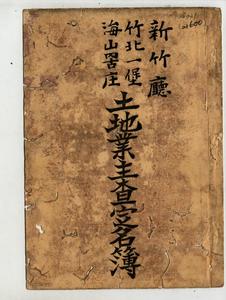 新竹廳
竹北一堡
海山罟庄
土地業主查定名簿